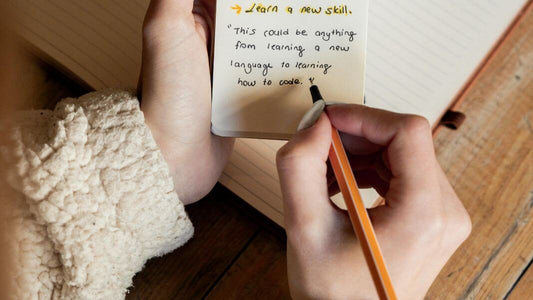 → Learn a new skill.
"This could be anything
from learning a new
language to learning
how to code."